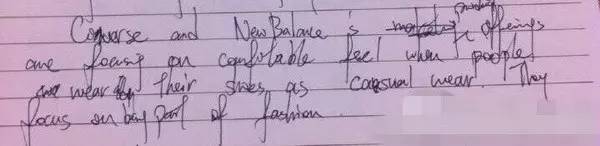 Converse and NewBalance's product offerings
are focusing on comfortable feel when people
wear their shoes as casual wear. They
focus on being part of fashion.